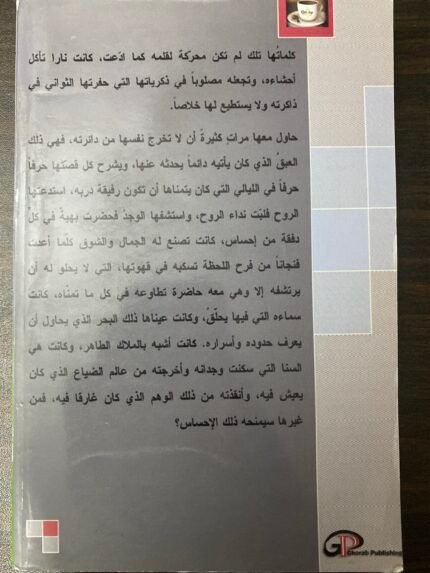 كلماتُها تلك لم تكن محركة لقلمه كما ادّعت، كانت نارا تأكل
أحشاءه، وتجعله مصلوباً في ذكرياتها التي حفرتها الثواني في
ذاكرته ولا يستطيع لها خلاصاً.
حاول معها مراتٍ كثيرةً أن لا تخرج نفسها من دائرته، فهي ذلك
العبقُ الذي كان يأتيه دائماً يحدثه عنها، ويشرح كل قصتها حرفاً
حرفاً في الليالي التي كان يتمناها أن تكون رفيقة دربه، استدعتها
الروح فلبّت نداء الروح، واستشفها الوجدُ فحضرت بهيةً في كلّ
دفقة من إحساس، كانت تصنع له الجمال والشوق كلّما أعدت
فنجاناً من فرح اللحظة تسكبه في قهوتها، التي لا يحلو له أن
يرتشفه إلا وهي معه حاضرة تطاوعه في كل ما تمنّاه، كانت
سماءه التي فيها يحلّقُ، وكانت عيناها ذلك البحر الذي يحاول أن
يعرف حدوده وأسراره. كانت أشبه بالملاك الطاهر، وكانت هي
السنا التي سكنت وجدانه وأخرجته من عالم الضياع الذي كان
يعيش فيه، وأنقذته من ذلك الوهم الذي كان غارقا فيه، فمن
غيرها سيمنحه ذلك الإحساس؟
Ghorab Publishing